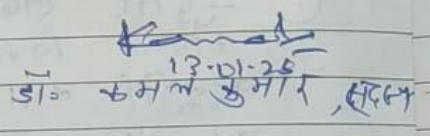 Kamal
13-01-25
डॉ० कमल कुमार, सदस्य